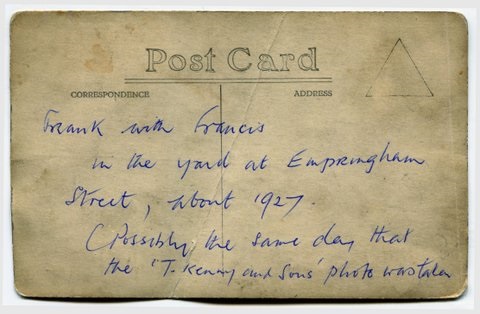 Post Card
CORRESPONDENCE
ADDRESS
Frank with Francis
in the yard at Empringham
Street, about 1927.
(Possibly, the same day that
the "T. Kenny and Sons' photo was taken